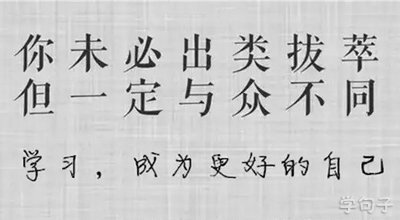 你未必出类拔萃
但一定与众不同
学习，成为更好的自己
学句子